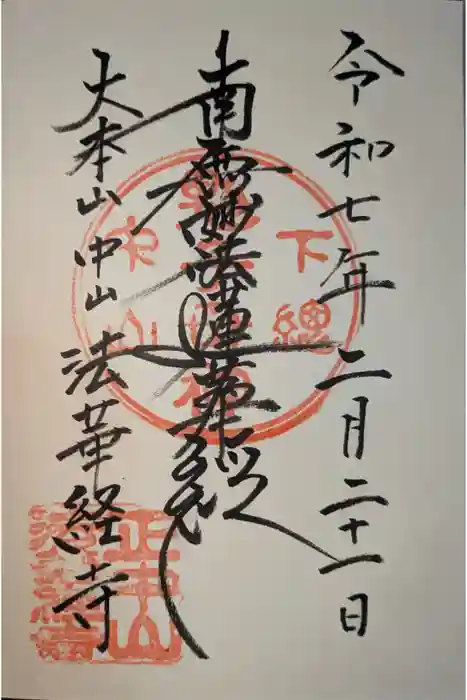 令和七年二月二十一日
南無妙法蓮華経
大本山 中山 法華経寺
下總
中山
正中山